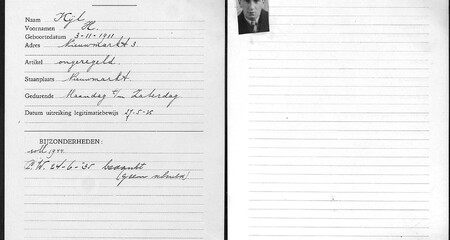 Naam Kijl
Voornamen H.
Geboortedatum 3-11-1911
Adres Nieuwmarkt 3
Artikel ongeregeld.
Staanplaats Nieuwmarkt.
Gedurende Maandag t/m Zaterdag
Datum uitreiking legitimatiebewijs 27-5-35
BIJZONDERHEDEN:
1944
24-6-'35 bedankt
(geen